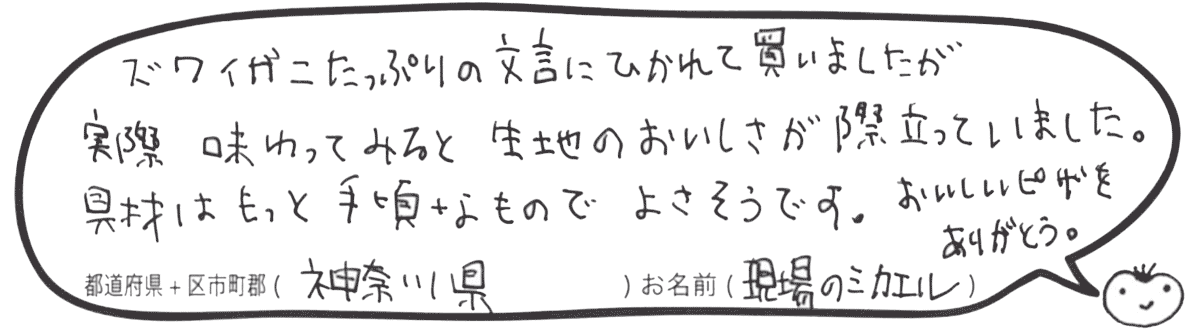 ズワイガニたっぷりの文言にひかれて買いましたが
実際 味わってみると 生地のおいしさが際立っていました。
具材はもっと手頃なものでよさそうです。おいしいピザを
ありがとう。
都道府県+区市町郡(神奈川県)お名前(現場のミカエル)